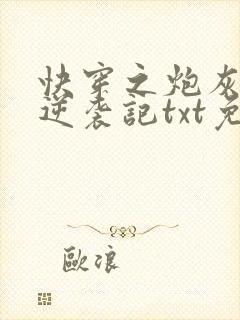 快穿之炮灰
逆袭記txt免
歐浪